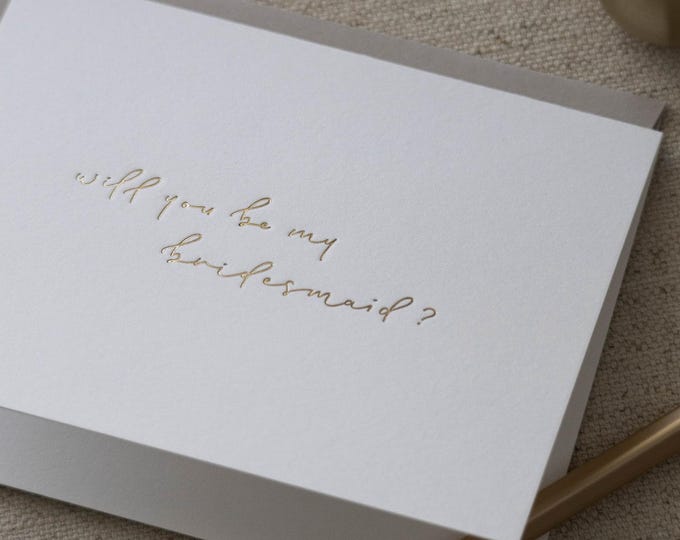 will you be my
bridesmaid?